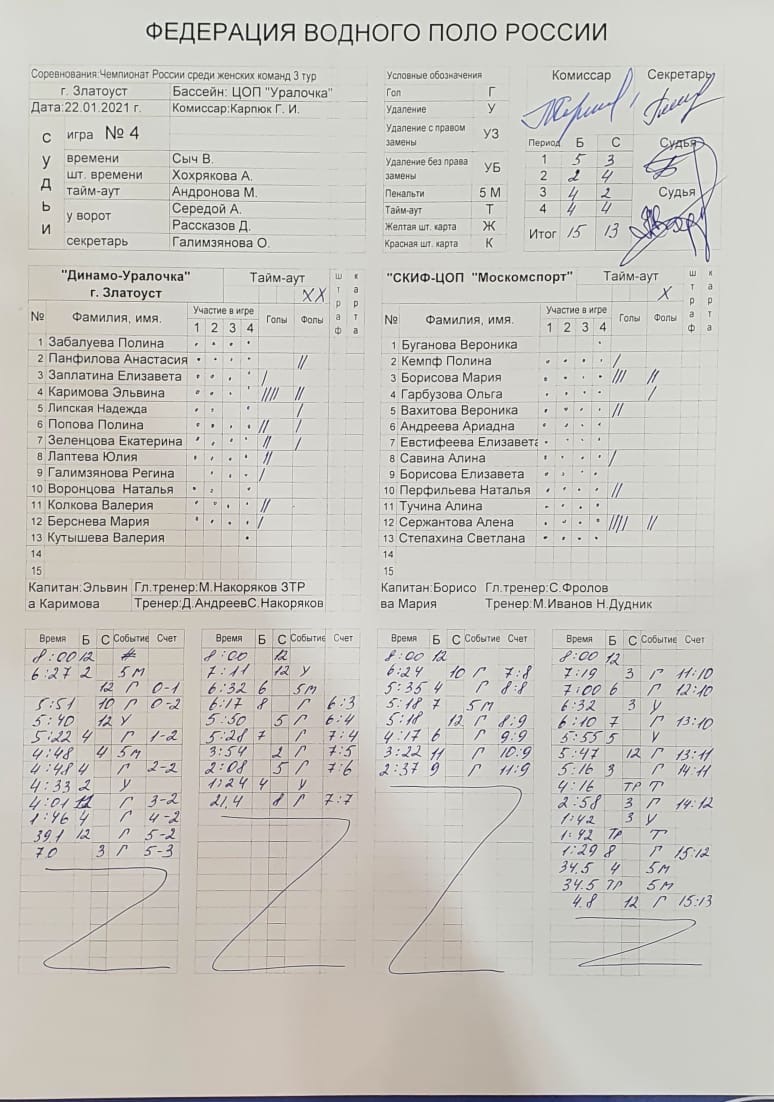 ФЕДЕРАЦИЯ ВОДНОГО ПОЛО РОССИИ
Соревнования:Чемпионат России среди женских команд 3 тур
г. Златоуст Бассейн: ЦОП "Уралочка"
Дата:22.01.2021 г. Комиссар:Карпюк Г. И.
СУДЬИ
игра № 4
времени Сыч В.
шт. времени Хохрякова А.
тайм-аут Андронова М.
у ворот Середой А.
Рассказов Д.
секретарь Галимзянова О.
Условные обозначения
Гол Г
Удаление У
Удаление с правом замены УЗ
Удаление без права замены УБ
Пенальти 5 М
Тайм-аут Т
Желтая шт. карта Ж
Красная шт. карта К
Комиссар Секретарь
Период Б С Судья
1 5 3
2 2 4
3 4 2 Судья
4 4 4
Итог 15 13
"Динамо-Уралочка" г. Златоуст Тайм-аут XX штраф карта
№ Фамилия, имя. Участие в игре 1 2 3 4 Голы Фолы
1 Забалуева Полина
2 Панфилова Анастасия //
3 Заплатина Елизавета /
4 Каримова Эльвина //// //
5 Липская Надежда /
6 Попова Полина // /
7 Зеленцова Екатерина // /
8 Лаптева Юлия //
9 Галимзянова Регина /
10 Воронцова Наталья
11 Колкова Валерия //
12 Берснева Мария /
13 Кутышева Валерия
14
15
Капитан:Эльвин Гл.тренер:М.Накоряков ЗТР
а Каримова Тренер:Д.АндреевС.Накоряков
"СКИФ-ЦОП "Москомспорт" Тайм-аут X штраф карта
№ Фамилия, имя. Участие в игре 1 2 3 4 Голы Фолы
1 Буганова Вероника
2 Кемпф Полина /
3 Борисова Мария /// //
4 Гарбузова Ольга /
5 Вахитова Вероника //
6 Андреева Ариадна
7 Евстифеева Елизавета
8 Савина Алина /
9 Борисова Елизавета
10 Перфильева Наталья //
11 Тучина Алина
12 Сержантова Алена //// //
13 Степахина Светлана
14
15
Капитан:Борисо Гл.тренер:С.Фролов
ва Мария Тренер:М.Иванов Н.Дудник
Время Б С Событие Счет
8:00 12
6:27 2 5М
12 Г 0-1
5:51 10 Г 0-2
5:40 12 У
5:22 4 Г 1-2
4:48 4 5М
4:48 4 Г 2-2
4:33 2 У
4:01 12 Г 3-2
1:46 4 Г 4-2
39.1 12 Г 5-2
7.0 3 Г 5-3
Время Б С Событие Счет
8:00 12
7:11 12 У
6:32 6 5М
6:17 8 Г 6:3
5:50 5 Г 6:4
5:28 7 Г 7:4
3:54 2 Г 7:5
2:08 5 Г 7:6
1:24 4 У
21,4 8 Г 7:7
Время Б С Событие Счет
8:00 12
6:24 10 Г 7:8
5:35 4 Г 8:8
5:18 7 5М
5:18 12 Г 8:9
4:17 6 Г 9:9
3:22 11 Г 10:9
2:37 9 Г 11:9
Время Б С Событие Счет
8:00 12
7:19 3 Г 11:10
7:00 6 Г 12:10
6:32 3 У
6:10 7 Г 13:10
5:55 5 У
5:47 12 Г 13:11
5:16 3 Г 14:11
4:16 ТР Т
2:58 3 Г 14:12
1:42 3 У
1:42 ТР Т
1:29 8 Г 15:12
34.5 4 5М
34.5 ТР 5М
4.8 12 Г 15:13